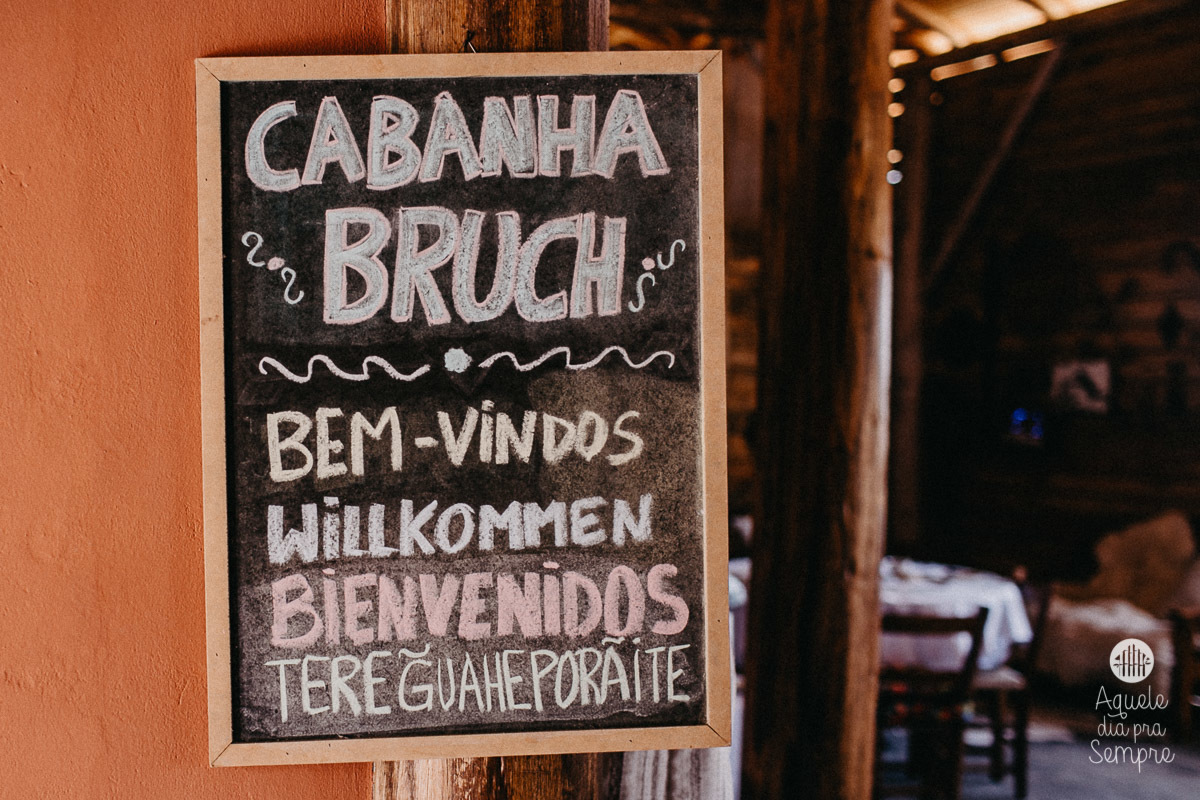 CABANHA
BRUCH
BEM-VINDOS
WILLKOMMEN
BIENVENIDOS
TEREG̃UAHEPORÃITE
Aquele
dia pra
Sempre